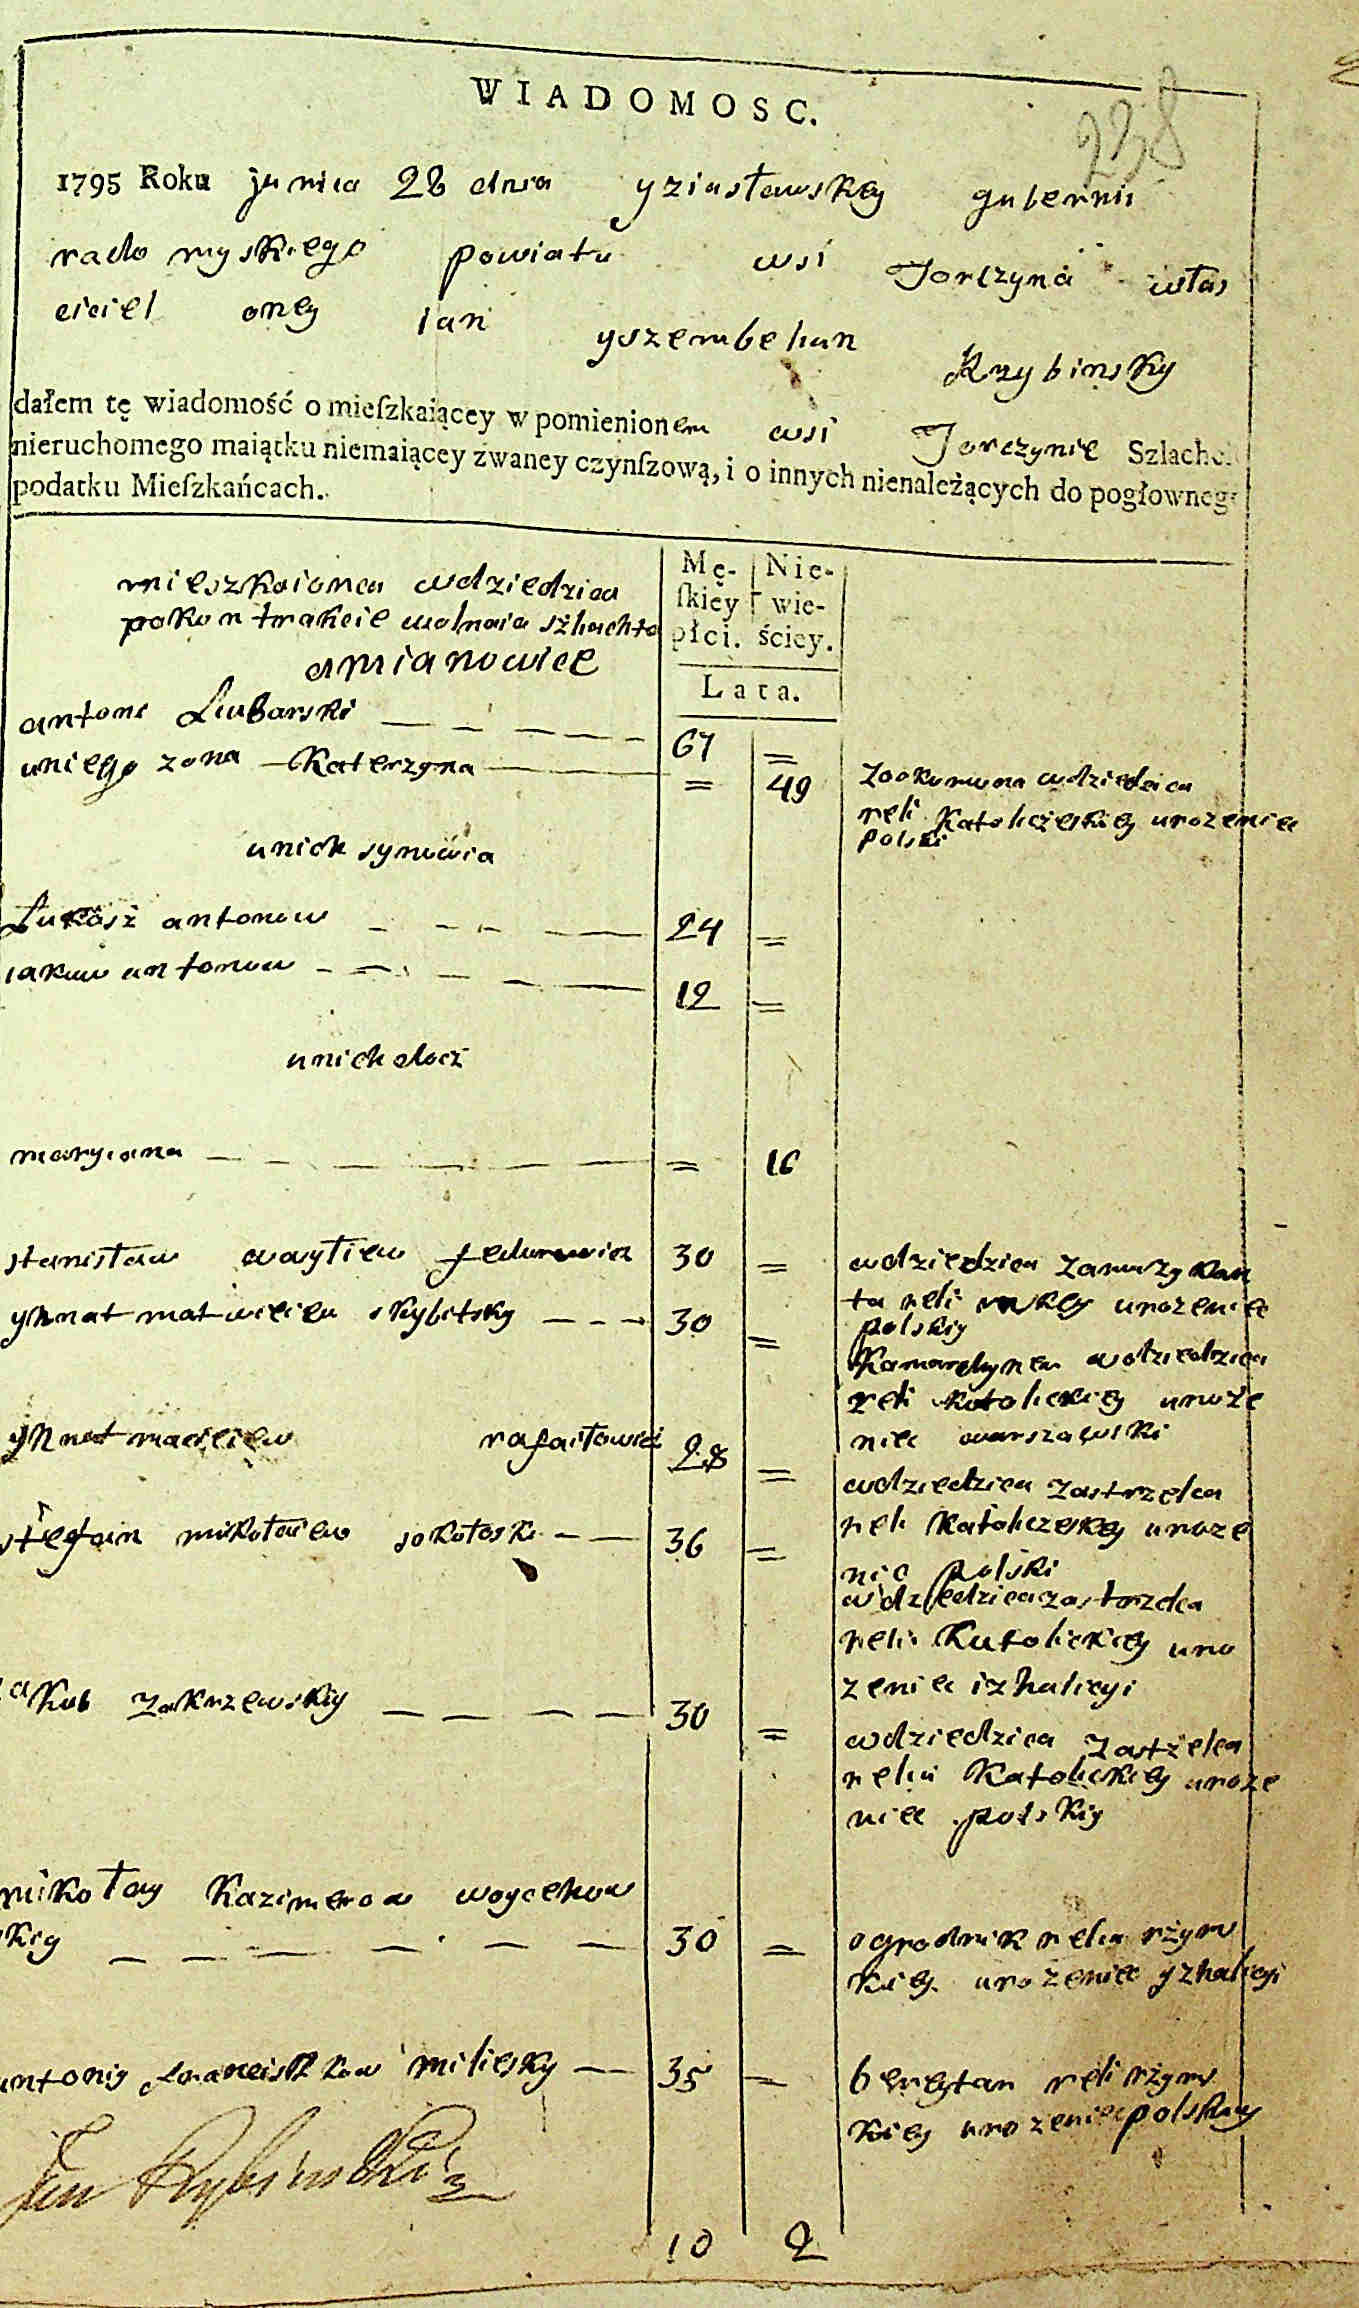 238
WIADOMOSC.
1795 Roku junia 28 dnia yziasławskey gubernii
rado myskiego powiatu wsi Torczyna włas
ciciel oney ian yszembelian Rzybinsky
dałem tę wiadomość o mieſzkaiącey w pomienionem wsi Torczynie Szlache
nieruchomego maiątku niemaiącey zwaney czynſzową, i o innych nienależących do pogłowneg
podatku Mieſzkańcach.
mieszkaionca wdziedzica
pokontrakcie wolnaia szliachta
amianowice
Mę- Nie-
ſkiey wie-
płci. ściey.
Lata.
antoni Liubarski 67 =
uniego zona Katerzyna = 49
zookomona wdziedzica
reli Katoliczeskiey urozeniec
polski
unich synowia
Lukasz antonow 24 =
iakuw antonow 12 =
unich docz
maryiana = 16
stanisław waytiew fedorowicz 30 =
wdziedzica zamuzykan
ta reli urozeniec
polskiy
yhnat matwieiew skybitsky 30 =
Kamardynem wdziedzica
reli katolickiey uroze
niec warszawski
yhnat macieiew rafaiłowicz 28 =
wdziedzica zastrzelca
reli Katoliczeskey uroze
nic polski
stefan mikołaiew sokołoski 36 =
wdziedzica zastorzelca
reli Katolickiey uro
zeniec izhalicyi
iakub zakrzewskiy 30 =
wdziedzica zastzelca
relii Katolickiey uroze
niec polskiy
mikołay Kazimerow woycehow
skiy 30 =
ogrodnik relii rżyms
kiey urozeniec yzhalicyi
antoniy franciszkow milicsky 35 =
bereytar reli rżyms
kiey urozeniec polskiey
Jan Rybinski
10 2